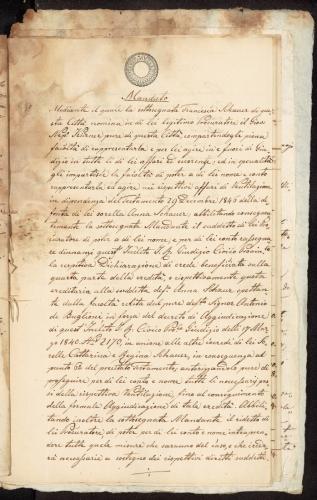 Mandato
Mediante il quale la sottosegnata Francesca Schauer di que
sta Città nomina in di lei legittimo Procuratore il Giov.
pure di questa Città compartendogli piena
facoltà di rappresentarla e per lei agire in e fuori di Giu
dizio in tutti li di lei affari ed in generale
gli impartisce la facoltà di poter a di lei nome e conto
rappresentarla ed agire nei rispettivi affari di Ventilazione
in dipendenza del testamento 29 Decembre 1845 della de
fonta di lei sorella Anna Schauer, abilitando conseguen
temente la sottosegnata Mandante il suddetto di lei Pro
curatore di poter a di lei nome, e per di lei conto rassegna
re dinnanzi quest' Inclito I. R. Giudizio Civico Provin.le
la rispettiva Dichiarazione di erede beneficiata nella
quarta parte della eredità, e rispettivamente questa
ereditaria alla suddetta def.a Anna Schauer spettan
te dalla facoltà relitta dal pure def.to Signor Antonio
de Buglione in forza del decreto di Aggiudicazione
di quest' Inclito I. R. Civico Prov. Giudizio delli 17 Mar
zo 1840 N.° 2170, in unione alle altre eredi di lei So
relle Catharina e Regina Schauer, in conseguenza al
punto del prestato Testamento, autorizzandolo pure di
proseguire per di lei conto e nome tutti li necessarj pas
si della rispettiva Ventilazione, fino al conseguimento
della formale Aggiudicazione di tale eredità. Abili
tando inoltre la sottosegnata Mandante il ridetto di
lei Procuratore, di poter per di lei conto e nome intrapren
dere tutte quelle misure che saranno del caso, e che crede
rà necessarie a sostegno dei rispettivi diritti suddetti